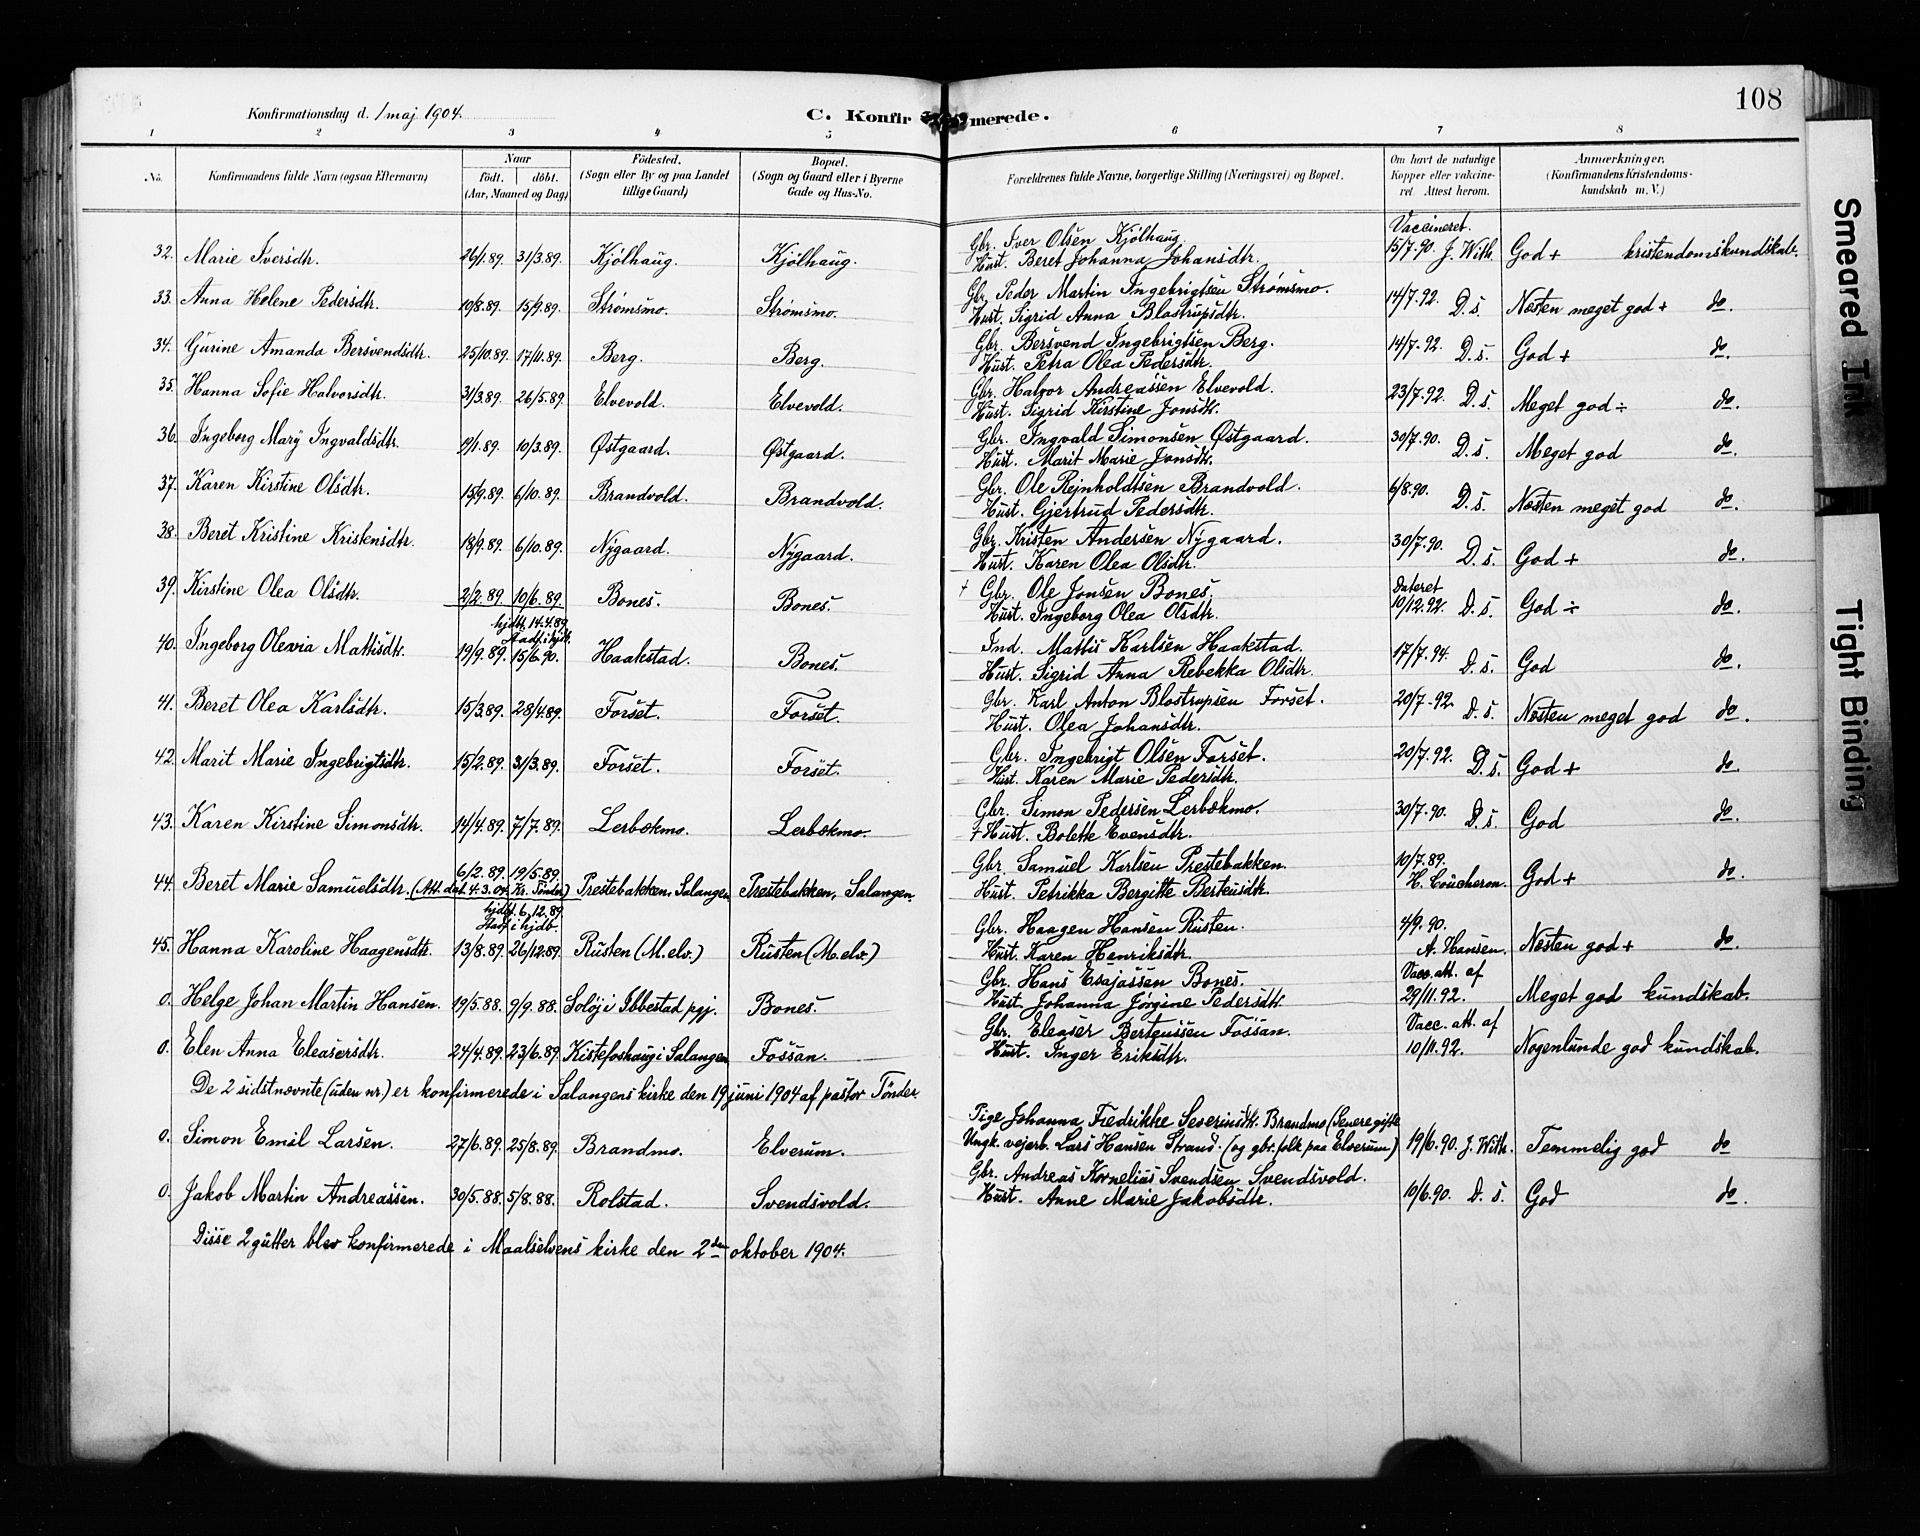 108
Konfirmationsdag d. 1 maj 1904.
C. Konfirmerede.
1 2 3 4 5 6 7 8
No. Konfirmandens fulde Navn (ogsaa Efternavn)
Naar
Födt. döbt.
(Aar, Maaned og Dag)
Födested.
(Sogn eller By og paa Landet
tillige Gaard)
Bopæl.
(Sogn og Gaard eller i Byerne
Gade og Hus-No.
Forældrenes fulde Navne, borgerlige Stilling (Næringsvei) og Bopæl.
Om havt de naturlige
Kopper eller vakcine-
ret. Attest herom.
Anmærkninger.
(Konfirmandens Kristendoms-
kundskab m. V.)
Vaccineret.
32. Marie Iversdtr. 26/1.89. 31/3.89. Kjølhaug. Kjølhaug. Gbr. Iver Olsen Kjølhaug. 15/7.90. J. With. God + kristendomskundskab.
Hust. Beret Johanna Johansdtr.
33. Anna Helene Pedersdtr. 10/8.89. 15/9.89. Strømsmo. Strømsmo. Gbr. Peder Martin Ingebrigtsen Strømsmo. 14/7.92. D. s. Næsten meget god + do.
Hust. Sigrid Anna Blostrupsdtr.
34. Gurine Amanda Bersvendsdtr. 25/10.89. 17/11.89. Berg. Berg. Gbr. Bersvend Ingebrigtsen Berg. 14/7.92. D. s. God + do.
Hust. Petra Olea Pedersdtr.
35. Hanna Sofie Halvorsdtr. 31/3.89. 26/5.89. Elvevold. Elvevold. Gbr. Halvor Andreassen Elvevold. 23/7.92. D. s. Meget god ÷ do.
Hust. Sigrid Kirstine Jonsdtr.
36. Ingeborg Mary Ingvaldsdtr. 9/1.89. 10/3.89. Østgaard. Østgaard. Gbr. Ingvald Simonsen Østgaard. 30/7.90. D. s. Meget god do.
Hust. Marit Marie Jonsdtr.
37. Karen Kirstine Olsdtr. 15/9.89. 6/10.89. Brandvold. Brandvold. Gbr. Ole Rejnholdtsen Brandvold. 6/8.90. D. s. Næsten meget god do.
Hust. Gjertrud Pedersdtr.
38. Beret Kristine Kristensdtr. 18/9.89. 6/10.89. Nygaard. Nygaard. Gbr. Kristen Andersen Nygaard. 30/7.90. D. s. God + do.
Hust. Karen Olea Olsdtr.
39. Kirstine Olea Olsdtr. 2/2.89. 10/6.89. Bones. Bones. † Gbr. Ole Jonsen Bones. Dateret
Hust. Ingeborg Olea Olsdtr. 10/12.92. D. s. God ÷ do.
hjdt. 14.4.89.
Stadf. i hjdt.
40. Ingeborg Olevia Mattisdtr. 19/9.89. 15/6.90. Haakstad. Bones. Ind. Mattis Karlsen Haakstad. 17/7.94. D. s. God do.
Hust. Sigrid Anna Rebekka Olsdtr.
41. Beret Olea Karlsdtr. 15/3.89. 28/4.89. Forset. Forset. Gbr. Karl Anton Blostrupsen Forset. 20/7.92. D. s. Næsten meget god do.
Hust. Olea Johansdtr.
42. Marit Marie Ingebrigtsdtr. 15/2.89. 31/3.89. Forset. Forset. Gbr. Ingebrigt Olsen Forset. 20/7.92. D. s. God + do.
Hust. Karen Marie Pedersdtr.
43. Karen Kirstine Simonsdtr. 14/4.89. 7/7.89. Lerbækmo. Lerbækmo. Gbr. Simon Pedersen Lerbækmo. 30/7.90. D. s. God do.
† Hust. Bolette Evensdtr.
6/2.89. 19/5.89.
44. Beret Marie Samuelsdtr. (Att. dat. 4.3.04. Kr. Tønder) Prestebakken, Salangen Prestebakken, Salangen. Gbr. Samuel Karlsen Prestebakken. 10/7.89. H. Coucheron. God + do.
Hust. Petrikka Bergitte Berteusdtr.
hjdbt. 6.12.89.
Stadf. i hjdb.
45. Hanna Karoline Haagensdtr. 13/8.89. 26/12.89. Rusten (M.elv.) Rusten (M.elv.) Gbr. Haagen Hansen Rusten. 4/9.90. A. Hansen. Næsten god + do.
Hust. Karen Henriksdtr.
0. Helge Johan Martin Hansen. 19/5.88. 9/9.88. Soløj i Ibbestad pgj. Bones. Gbr. Hans Esajassen Bones. Vacc. att. af
Hust. Johanna Jørgine Pedersdtr. 29/11.92. Meget god kundskab.
0. Elen Anna Eleasersdtr. 24/4.89. 23/6.89. Kistefoshaug i Salangen Fossan. Gbr. Eleaser Berteussen Fossan. Vacc. att. af
Hust. Inger Eriksdtr. 10/11.92. Nogenlunde god kundskab.
De 2 sidstnævnte (uden nr.) er konfirmerede i Salangens kirke den 19 juni 1904 af pastor Tönder
0. Simon Emil Larsen. 27/6.89. 25/8.89. Brandmo. Elverum. Pige Johanna Fredrikke Severinsdtr. Brandmo (Senere gifte
Ungk. vejarb. Lars Hansen Strand. (og gbr.folk paa Elverum) 19/6.90. J. With. Temmelig god do
0. Jakob Martin Andreassen. 30/5.88. 5/8.88. Rolstad. Svendsvold. Gbr. Andreas Kornelius Svendsen Svendsvold.
Hust. Anne Marie Jakobsdtr. 10/6.90. D. s. God do.
Disse 2 gutter blev konfirmerede i Maalselvens kirke den 2den oktober 1904.
Smeared Ink
Tight Binding